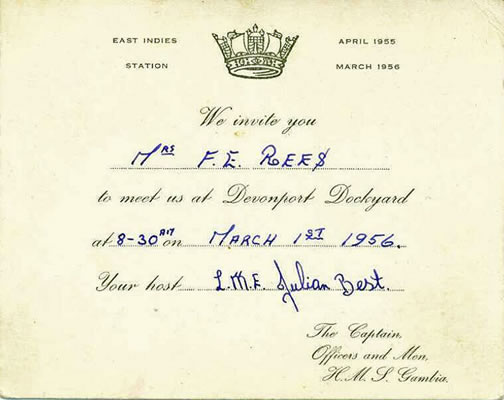 EAST INDIES STATION
APRIL 1955
MARCH 1956
We invite you
Mrs F.E. REES
to meet us at Devonport Dockyard
at 8-30 AM on MARCH 1ST 1956.
Your host L.M.E. Julian Best.
The Captain,
Officers and Men,
H.M.S. Gambia.